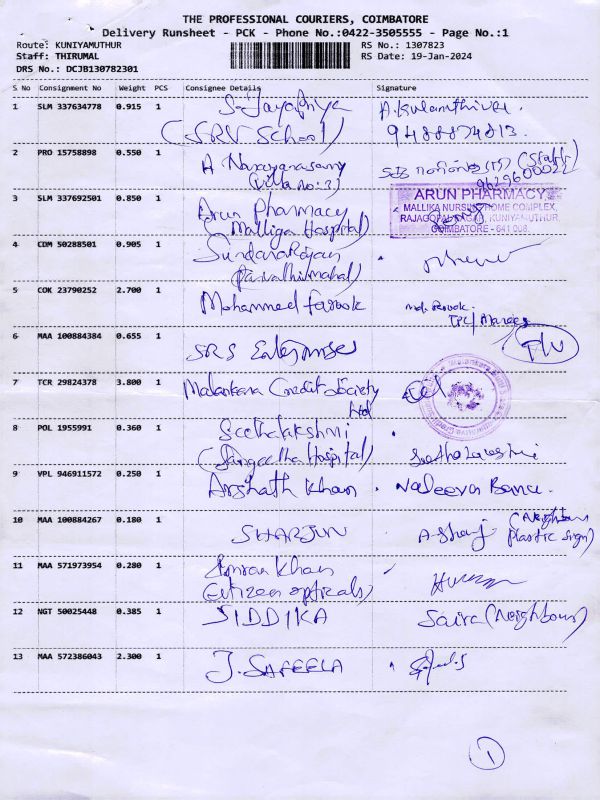 THE PROFESSIONAL COURIERS, COIMBATORE
Delivery Runsheet - PCK - Phone No.:0422-3505555 - Page No.:1
Route: KUNIYAMUTHUR
RS No.: 1307823
Staff: THIRUMAL
RS Date: 19-Jan-2024
DRS No.: DCJB130782301
S No Consignment No Weight PCS Consignee Details Signature
1 SLM 337634778 0.915 1 S-Jayapriya
(SRV School) 9488874813.
2 PRO 15758898 0.550 1 A Narayanasamy
(Villa No:3) 9629600022
3 SLM 337692501 0.850 1 Arun Pharmacy
(Malliga Hospital)
ARUN PHARMACY
MALLIKA NURSING HOME COMPLEX,
KUNIYAMUTHUR,
COIMBATORE - 641 008.
4 CDM 50288501 0.905 1 Sundararajan
(Parvathi mahal)
5 COK 23790252 2.700 1 Mohammed farook
6 MAA 100884384 0.655 1 SRS Enterprises
7 TCR 29824378 3.800 1 Malankara Credit Society
Ltd
8 POL 1955991 0.360 1 Seethalakshmi
(Sangeetha Hospital) Seethalakshmi
9 VPL 946911572 0.250 1 Arshath Khan
10 MAA 100884267 0.180 1 SHARJUN (Neighbour
11 MAA 571973954 0.280 1 Imran Khan
(Citizen opticals)
12 NGT 50025448 0.385 1 SIDDIKA Saira (Neighbour)
13 MAA 572386043 2.300 1 J. SAFEELA
1